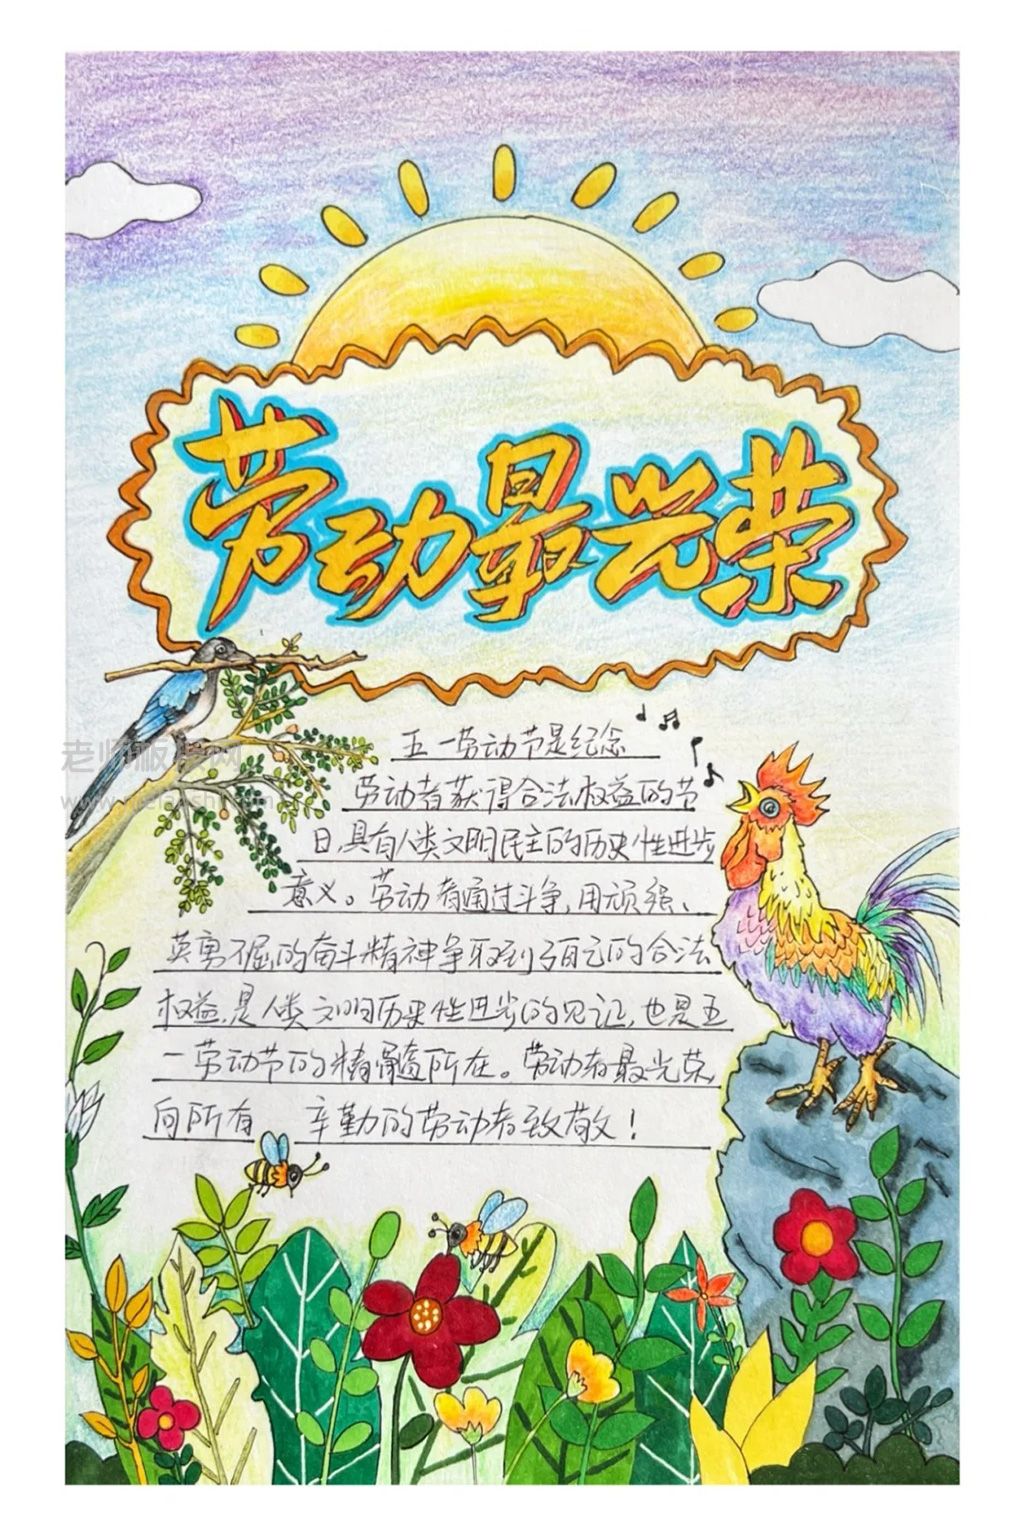 劳动最光荣
五一劳动节是纪念
劳动者获得合法权益的节
日,具有人类文明民主的历史性进步
意义。劳动者通过斗争,用顽强、
英勇不屈的奋斗精神争取到了自己的合法
权益,是人类文明历史性进步的见证,也是五
一劳动节的精髓所在。劳动者最光荣,
向所有 辛勤的劳动者致敬!
老师板报网